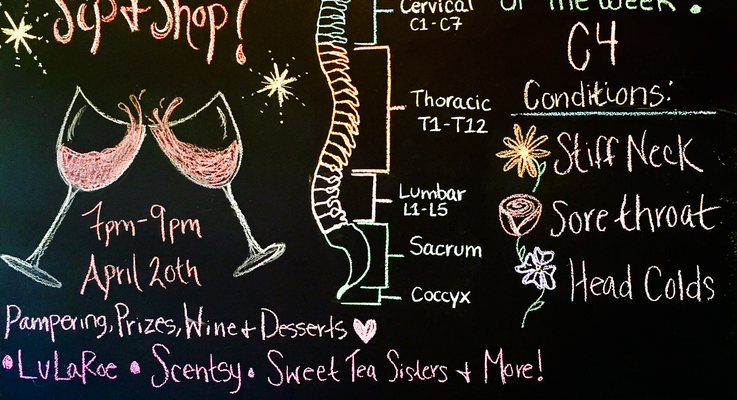 Sip & Shop!
7pm-9pm
April 20th
Pampering, Prizes, Wine & Desserts
• LuLaRoe • Scentsy • Sweet Tea Sisters & More!
Cervical
C1-C7
Thoracic
T1-T12
Lumbar
L1-L5
Sacrum
Coccyx
of the week!
C4
Conditions:
Stiff Neck
Sore throat
Head Colds